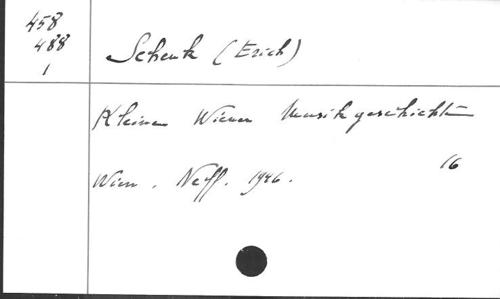 458
488
1
Schenk (Erich)
Kleine Wiener Musikgeschichte
16
Wien. Neff. 1946.